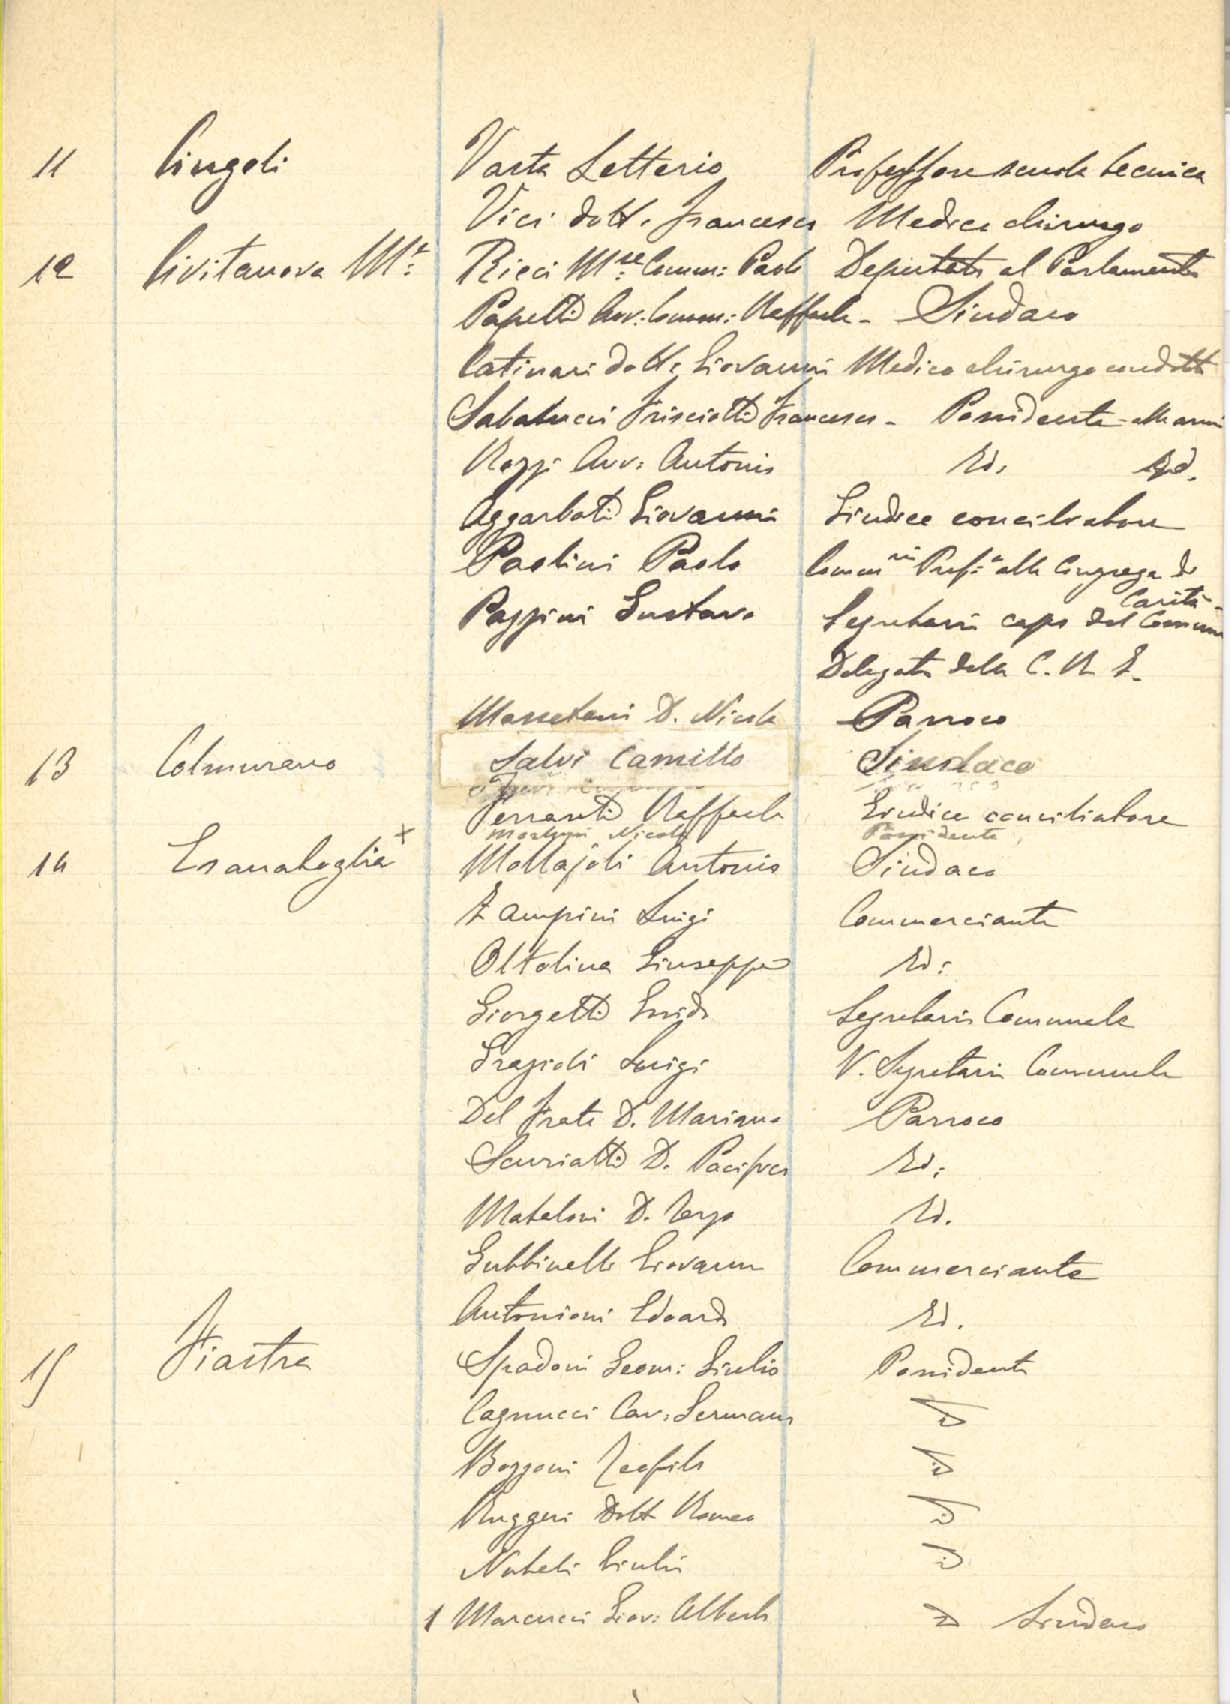 11 Cingoli Vasta Letterio Professore scuola tecnica
Vici dott. Francesco Medico chirurgo
12 Civitanova Me: Ricci Mse: Comm: Paolo Deputato al Parlamento
Papetti Avv: Comm: Raffaele - Sindaco
Catinari dott. Giovanni Medico chirurgo condotto
Sabatucci Frisciotti Francesco - Possidente
Avv: Antonio Id. Id.
Aggarbati Giovanni Giudice conciliatore
Paolini Paolo Commrio Prefo alla Congrega di
Carità
Pazzini Gustavo Segretario capo del Comune
Delegato della C. R. I.
Massetani D. Nicola Parroco
13 Colmurano Salvi Camillo Sindaco
Ferranti Raffaele Giudice conciliatore
Nicola Possidente
14 Esanatoglia x Mollajoli Antonio Sindaco
Zampini Luigi Commerciante
Oltolina Giuseppe Id:
Giorgetti Guido Segretario Comunale
Grazioli Luigi V. Segretario Comunale
Del Frate D. Mariano Parroco
Scuriatti D. Pacifico Id:
Mataloni D. Id.
Gubbinelli Giovanni Commerciante
Antonioni Edoardo Id.
15 Fiastra Spadoni Geom: Giulio Possidente
Cagnucci Cav: Germano id
Bozzoni Teofilo id
Ruggeri Dott Romeo id
Nobili Giulio id
1 Marcucci Giov: Alberto id Sindaco